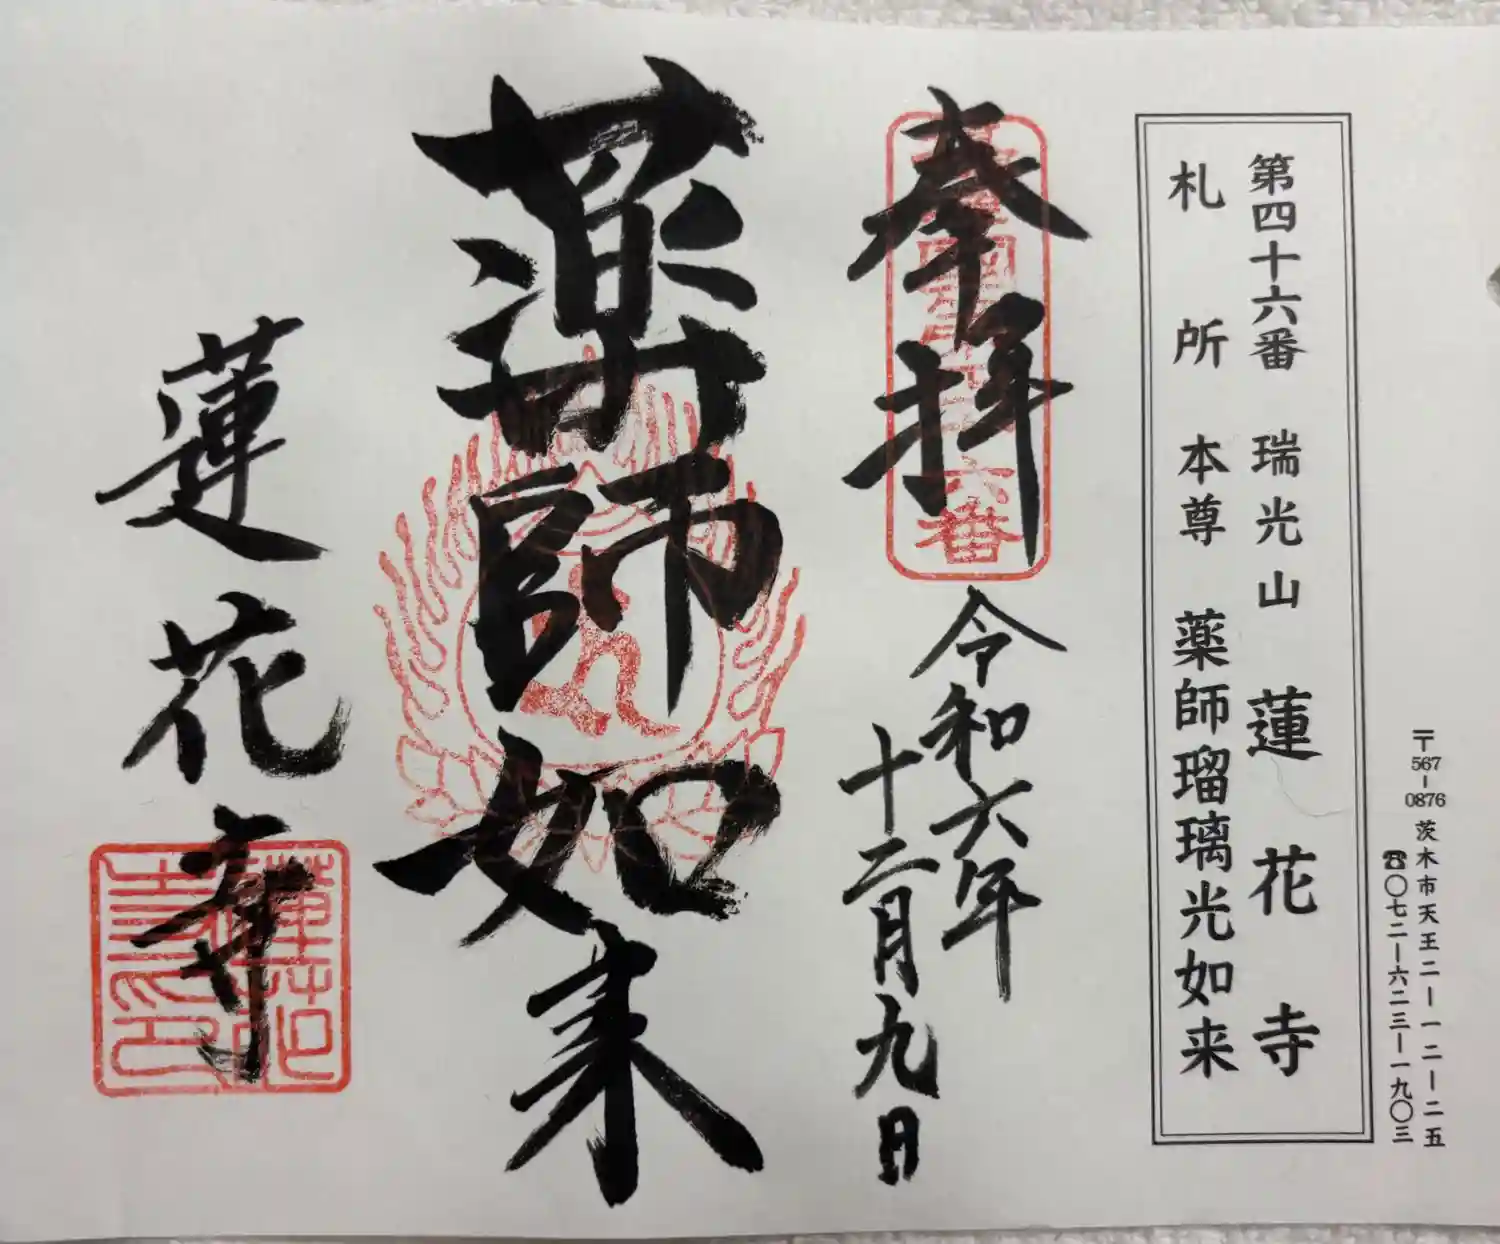 〒567-0876 茨木市天王二ー一二ー二五
☎〇七二ー六二三ー一九〇三
第四十六番 瑞光山 蓮花寺
札所本尊 薬師瑠璃光如来
奉拝
六番
令和六年
十二月九日
薬師如来
蓮花寺
蓮花
寺印